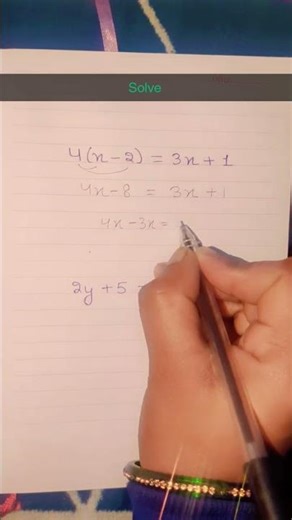 Solve
4(x-2) = 3x+1
4x-8 = 3x+1
4x-3x=
2y+5